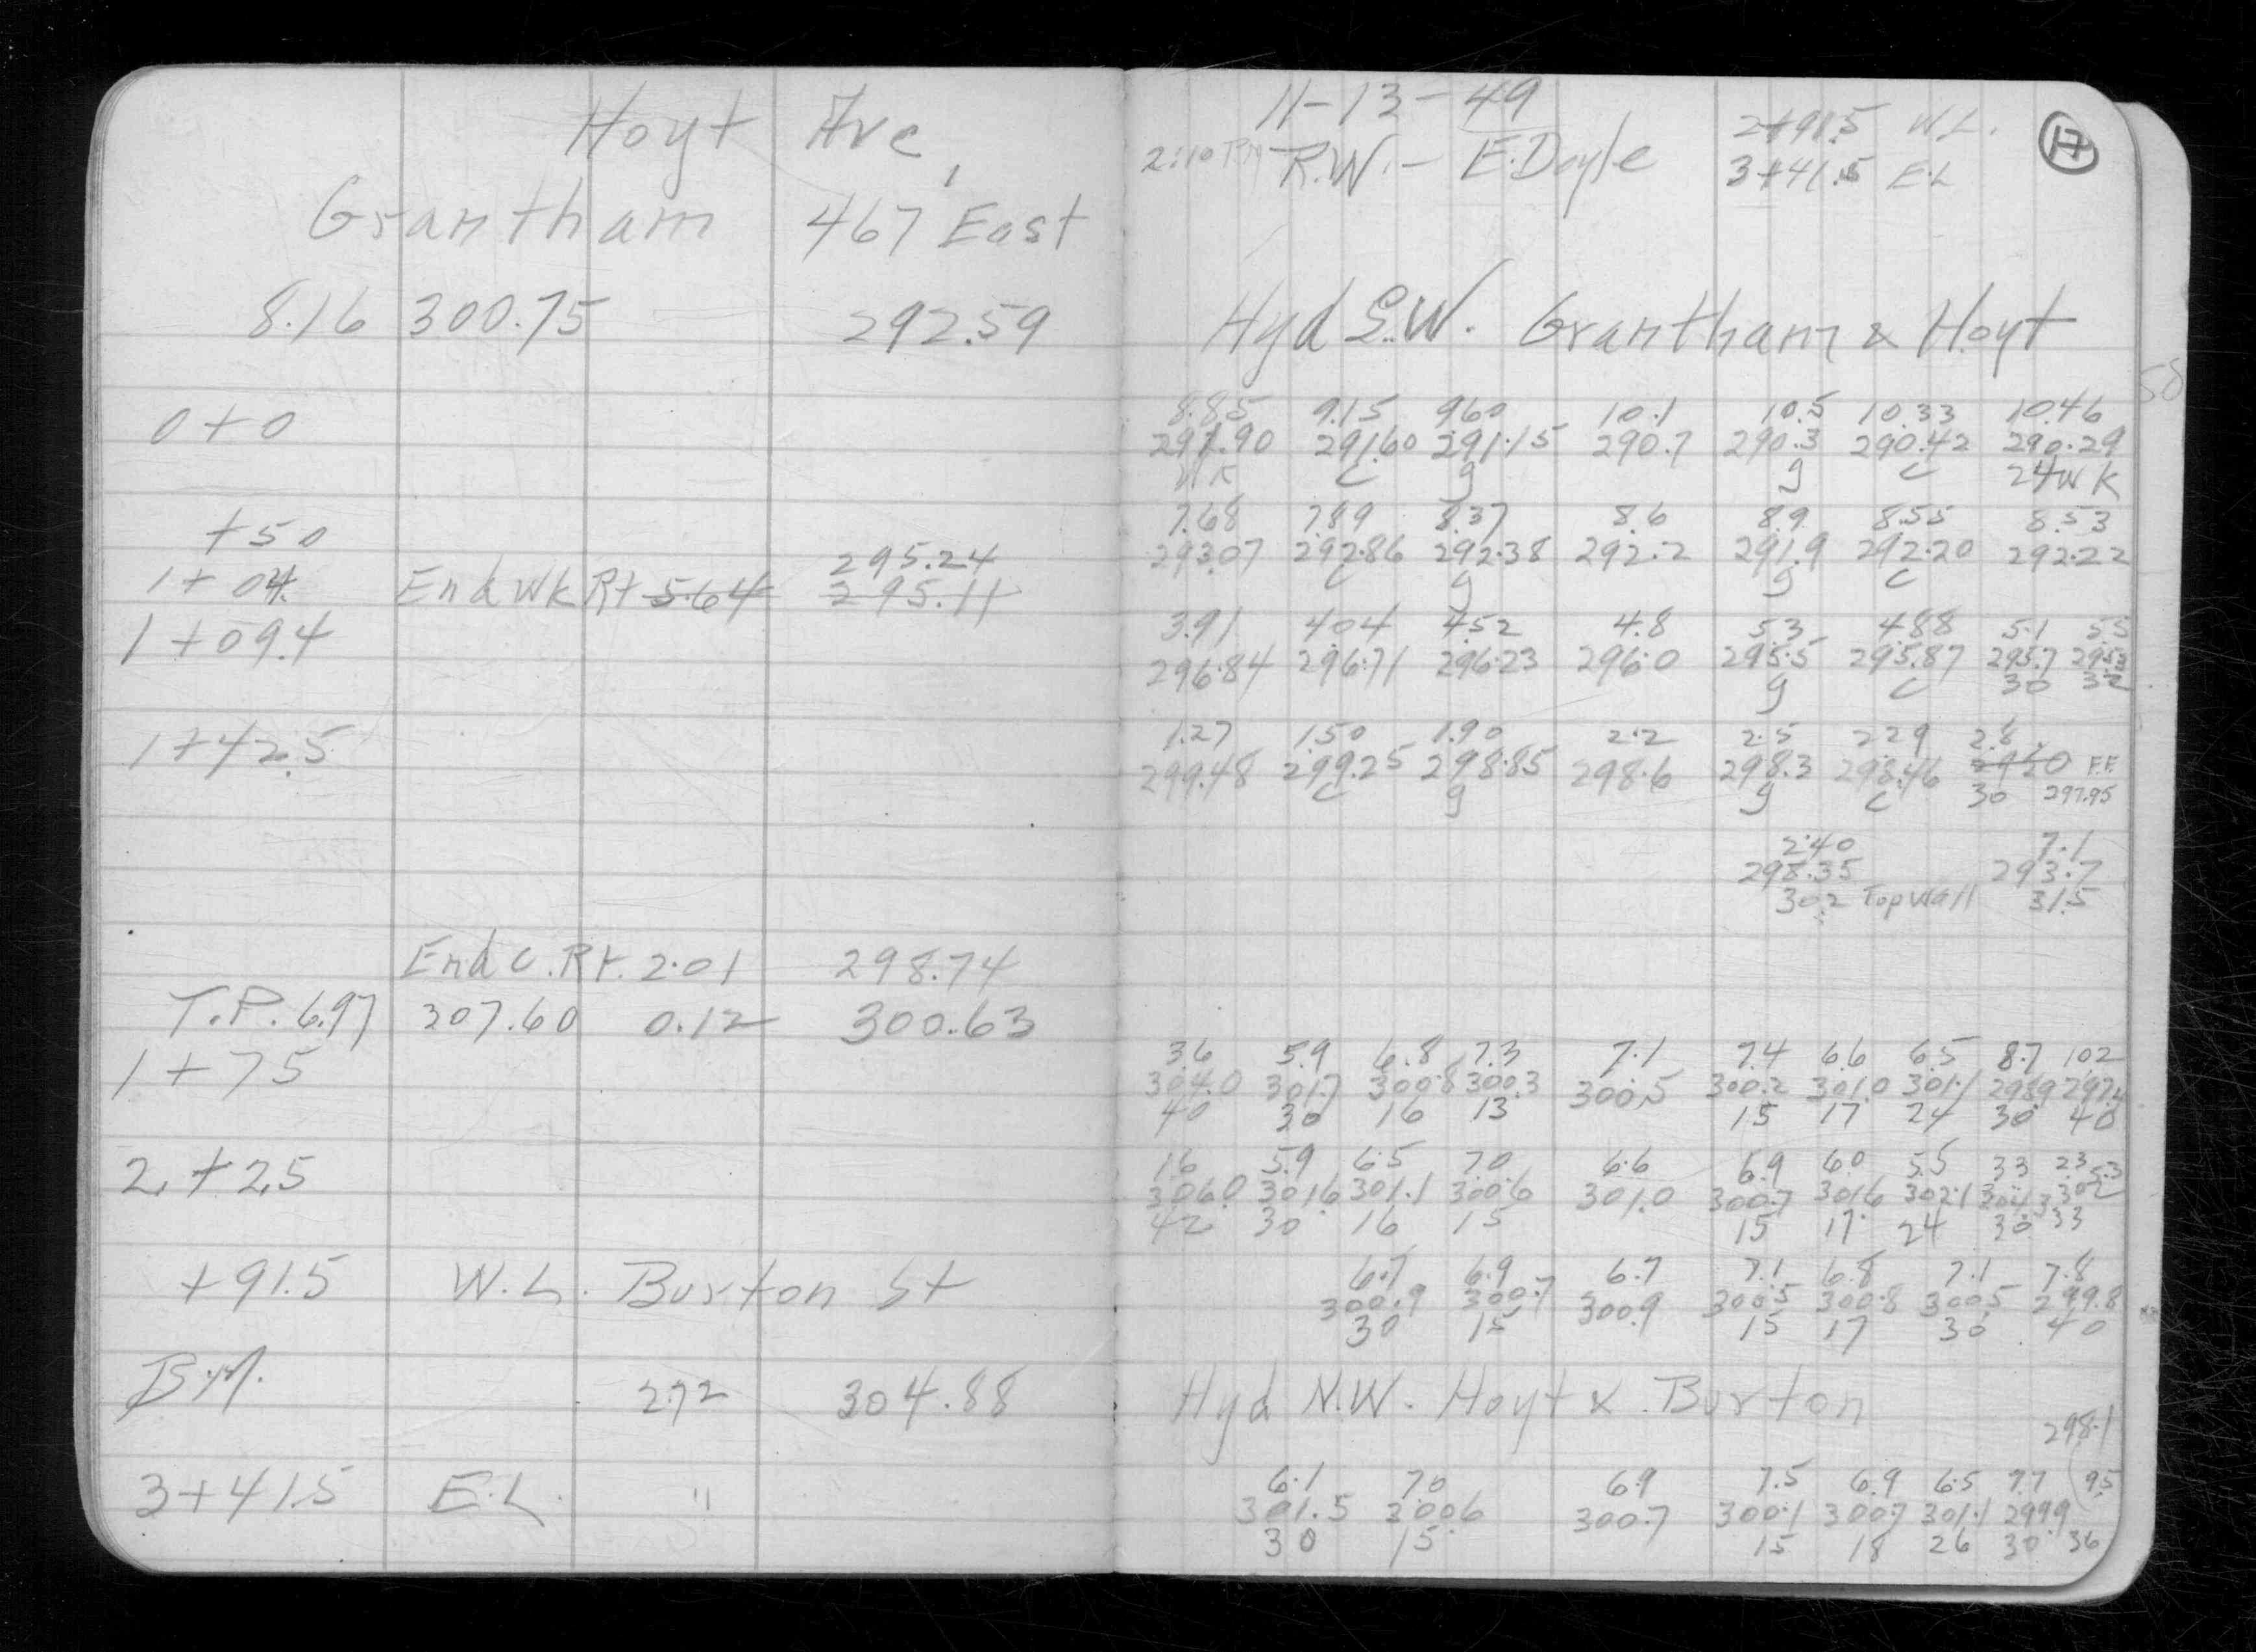 Hoyt Ave,
Grantham 467 East
8.16 300.75 292.59
0+0
+50
1+04. End Wk Rt 5.64 295.24
295.11
1+09.4
1+42.5
End C. Rt. 2.01 298.74
T.P. 6.97 307.60 0.12 300.63
1+75
2+25
+91.5 W.L. Burton St
B.M. 2.72 304.88
3+41.5 E.L. "
11-13-49
2:10 PM R.W. - E.Doyle
2+91.5 W.L.
3+41.5 E.L
17
Hyd S.W. Grantham & Hoyt
8.85 9.15 9.60 10.1 10.5 10.33 10.46
291.90 291.60 291.15 290.7 290.3 290.42 290.29
WK C g g C 24 WK
7.68 7.89 8.37 8.6 8.9 8.55 8.53
293.07 292.86 292.38 292.2 291.9 292.20 292.22
C g g C
3.91 4.04 4.52 4.8 5.3 4.88 5.1 5.5
296.84 296.71 296.23 296.0 295.5 295.87 295.7 295.3
g C 30 32
1.27 1.50 1.90 2.2 2.5 2.29 2.8
299.48 299.25 298.85 298.6 298.3 298.46 F.F.
C g g C 30 297.95
2.40 7.1
298.35 293.7
30.2 Top Wall 31.5
3.6 5.9 6.8 7.3 7.1 7.4 6.6 6.5 8.7 10.2
304.0 301.7 300.8 300.3 300.5 300.2 301.0 301.1 298.9 297.4
40 30 16 13 15 17 24 30 40
1.6 5.9 6.5 7.0 6.6 6.9 6.0 5.5 3.3 2.3 5.3
306.0 301.6 301.1 300.6 301.0 300.7 301.6 302.1
42 30 16 15 15 17 24 30 33
6.7 6.9 6.7 7.1 6.8 7.1 7.8
300.9 300.7 300.9 300.5 300.8 300.5 299.8
30 15 15 17 30 40
Hyd N.W. Hoyt & Burton
298.1
6.1 7.0 6.9 7.5 6.9 6.5 7.7 9.5
301.5 300.6 300.7 300.1 300.7 301.1 299.9
30 15 15 18 26 30 36